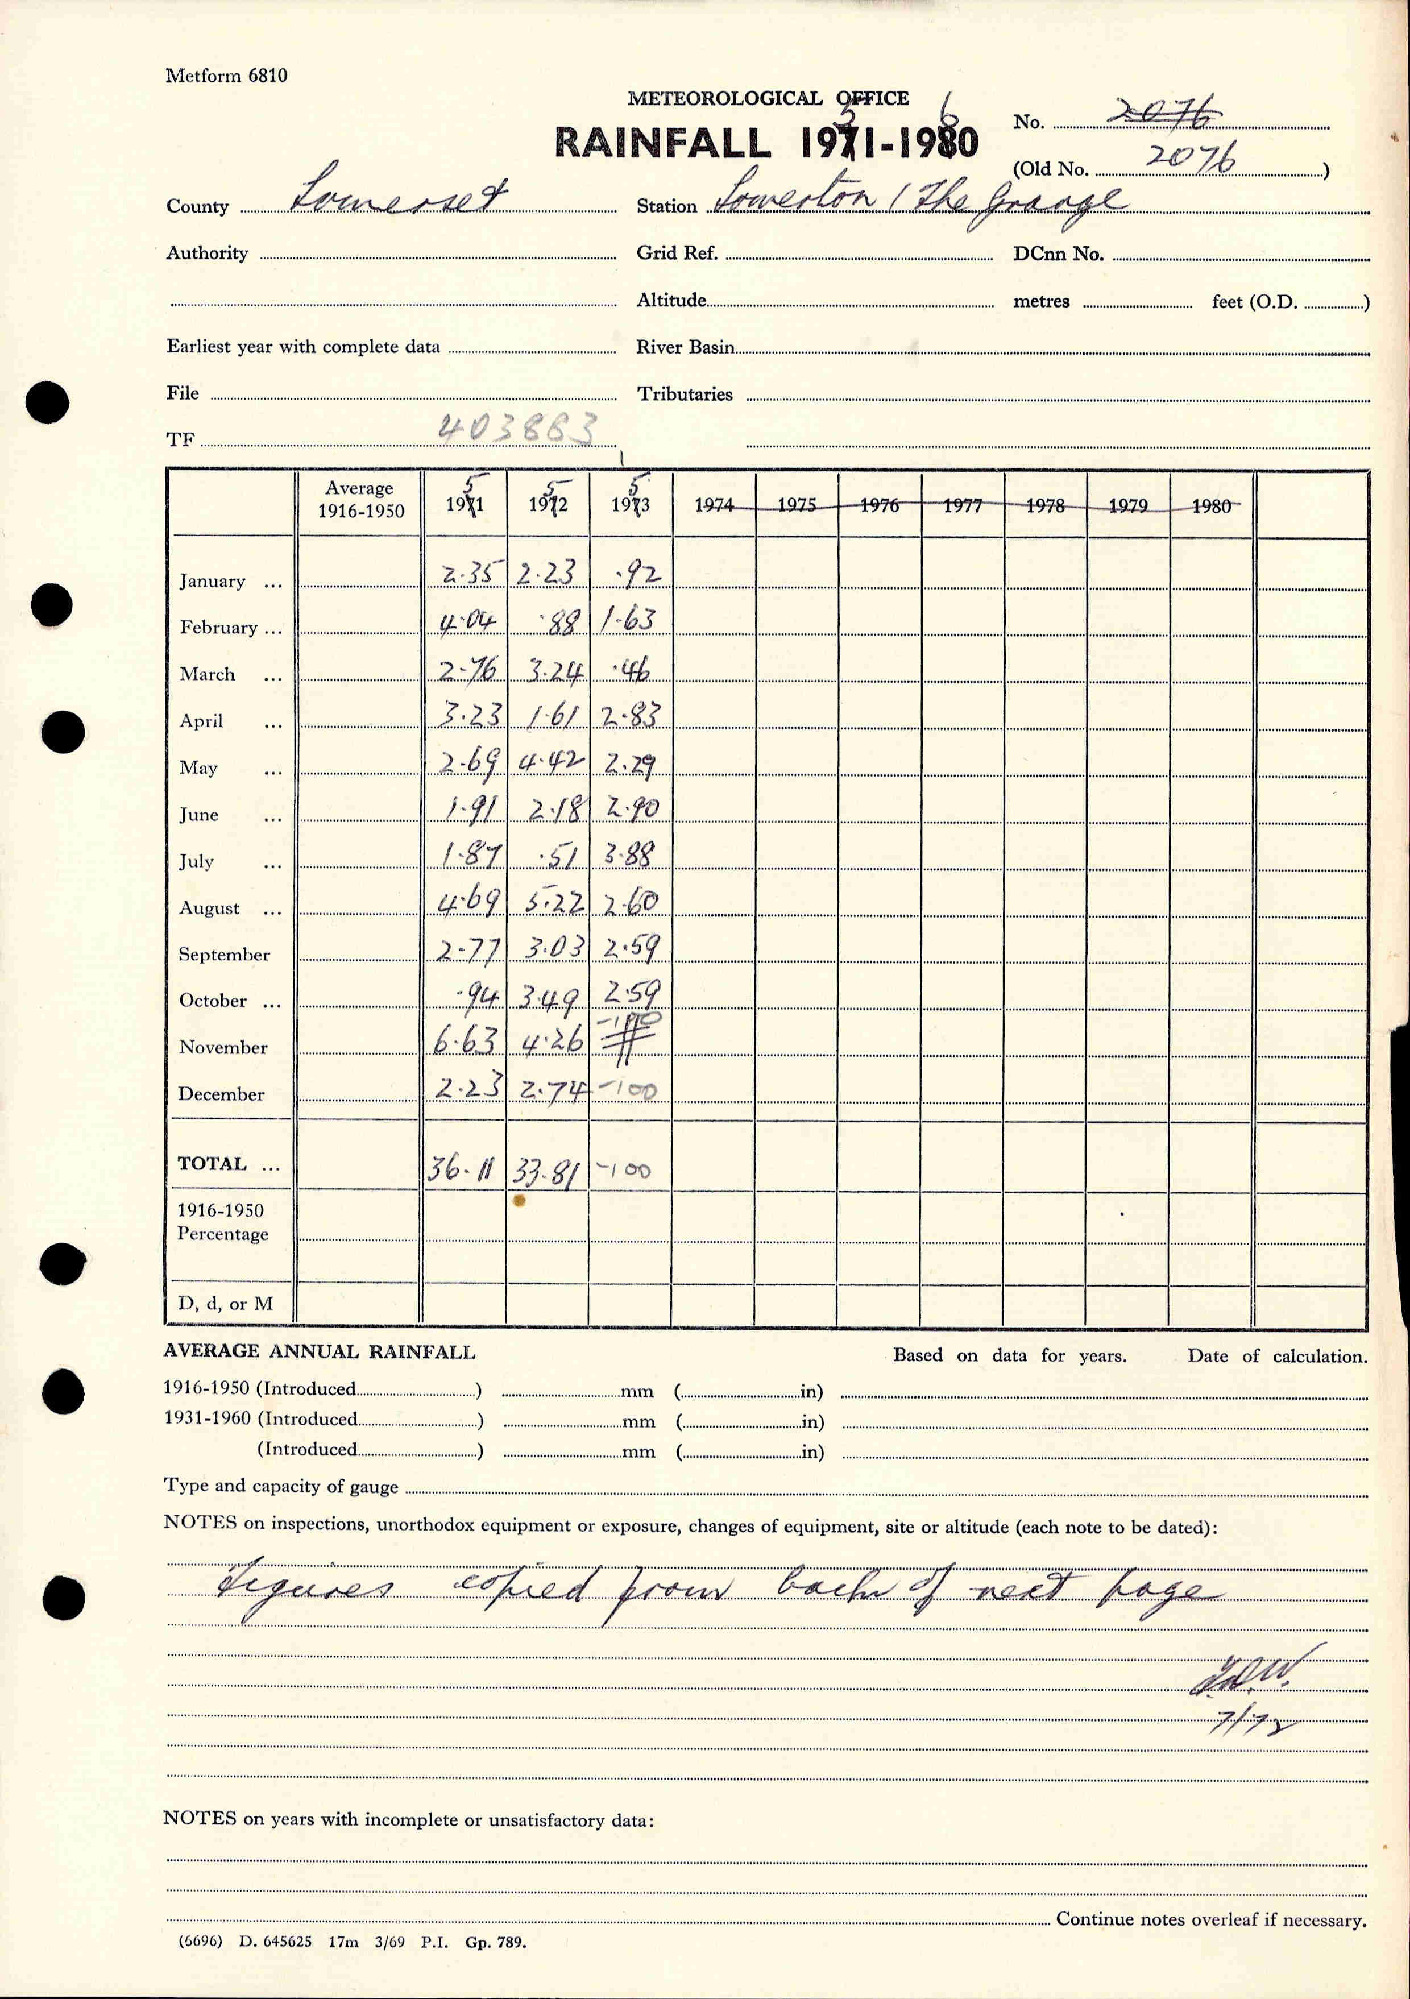 Metform 6810
METEOROLOGICAL OFFICE
RAINFALL 1951-1960
No. 2076
(Old No. 2076)
County Somerset Station Somerton / The Grange
Authority Grid Ref. DCnn No.
Altitude metres feet (O.D. )
Earliest year with complete data River Basin
File Tributaries
TF 403883
Average 1916-1950 1951 1952 1953 1974 1975 1976 1977 1978 1979 1980
January ... 2.35 2.23 .92
February ... 4.04 .88 1.63
March ... 2.76 3.24 .46
April ... 3.23 1.61 2.83
May ... 2.69 4.42 2.29
June ... 1.91 2.18 2.90
July ... 1.87 .51 3.88
August ... 4.69 5.22 2.60
September 2.77 3.03 2.59
October ... .94 3.49 2.59
November 6.63 4.26 -100
December 2.23 2.74 -100
TOTAL ... 36.11 33.81 -100
1916-1950
Percentage
D, d, or M
AVERAGE ANNUAL RAINFALL Based on data for years. Date of calculation.
1916-1950 (Introduced ) mm ( in)
1931-1960 (Introduced ) mm ( in)
(Introduced ) mm ( in)
Type and capacity of gauge
NOTES on inspections, unorthodox equipment or exposure, changes of equipment, site or altitude (each note to be dated):
Figures copied from back of next page
7/72
NOTES on years with incomplete or unsatisfactory data:
Continue notes overleaf if necessary.
(6696) D. 645625 17m 3/69 P.I. Gp. 789.